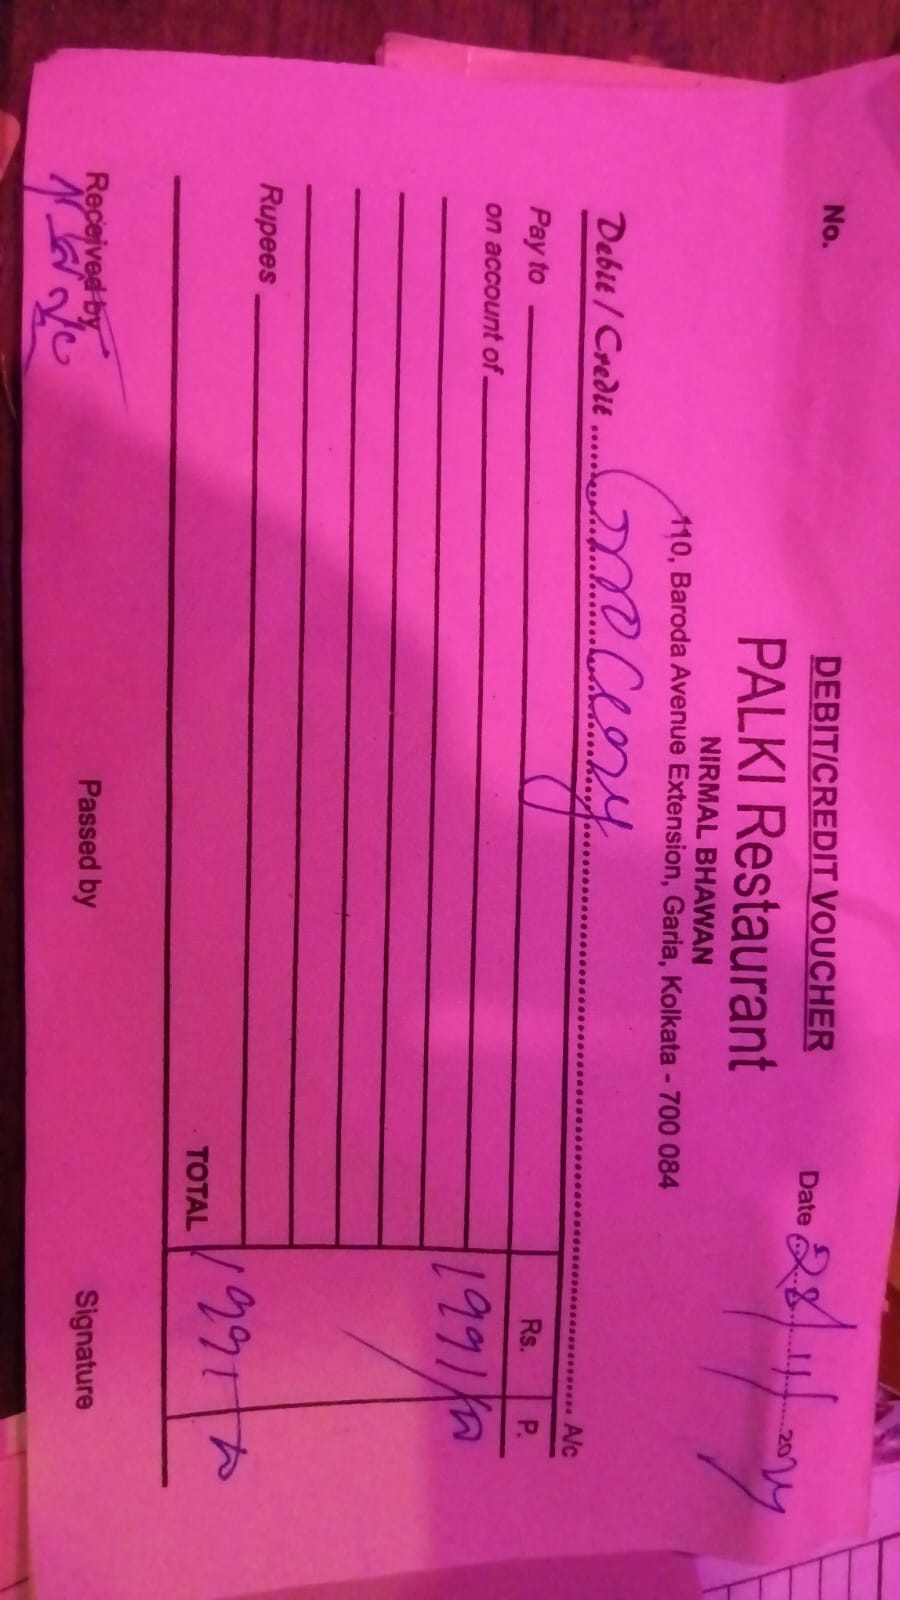 No.
DEBIT/CREDIT VOUCHER
Date 28/11/2024
PALKI Restaurant
NIRMAL BHAWAN
110, Baroda Avenue Extension, Garia, Kolkata - 700 084
Debit / Credit Grocery A/c
Pay to
Rs. P.
on account of
1991/-
Rupees
TOTAL 1991
Received by
Passed by
Signature